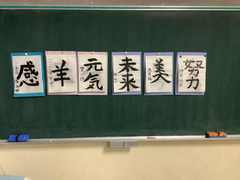 感
羊
元気
未来
美
努力